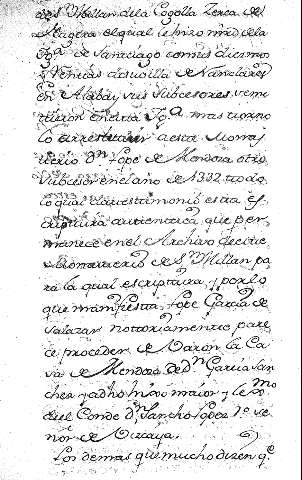 de Sn Millan dela Cogolla Zerca de
Nagera el qual se hizo md dela
Yga de Santiago con sus diezmos
y Rentas de su villa de Nanclares
en Alaba y sus subcesores remi
tieron en dicha Yga mas tiempo
lo a este Monas
terio Dn Lope de Mendoza otro
subcesor en el año de 1332 todo
lo qual da testimonio esta es
criptura autentica que per
manece en el Archivo de dicho
Monasterio de Sn Millan pa
ra la qual escriptura y por lo
que manifiesta Lope Garcia de
Salazar notoriamente pare
ce proceder de Varon la Ca
sa de Mendoza de Dn Garcia San
chez y a dho hijo maior y lexmo
del Conde Dn Sancho Lopez 1o Se
ñor de Vizcaya.
Los demas que mucho dizen qe